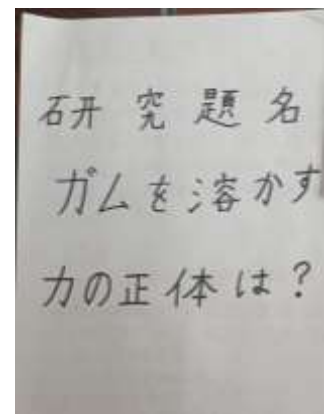 研究題名
ガムを溶かす
力の正体は？